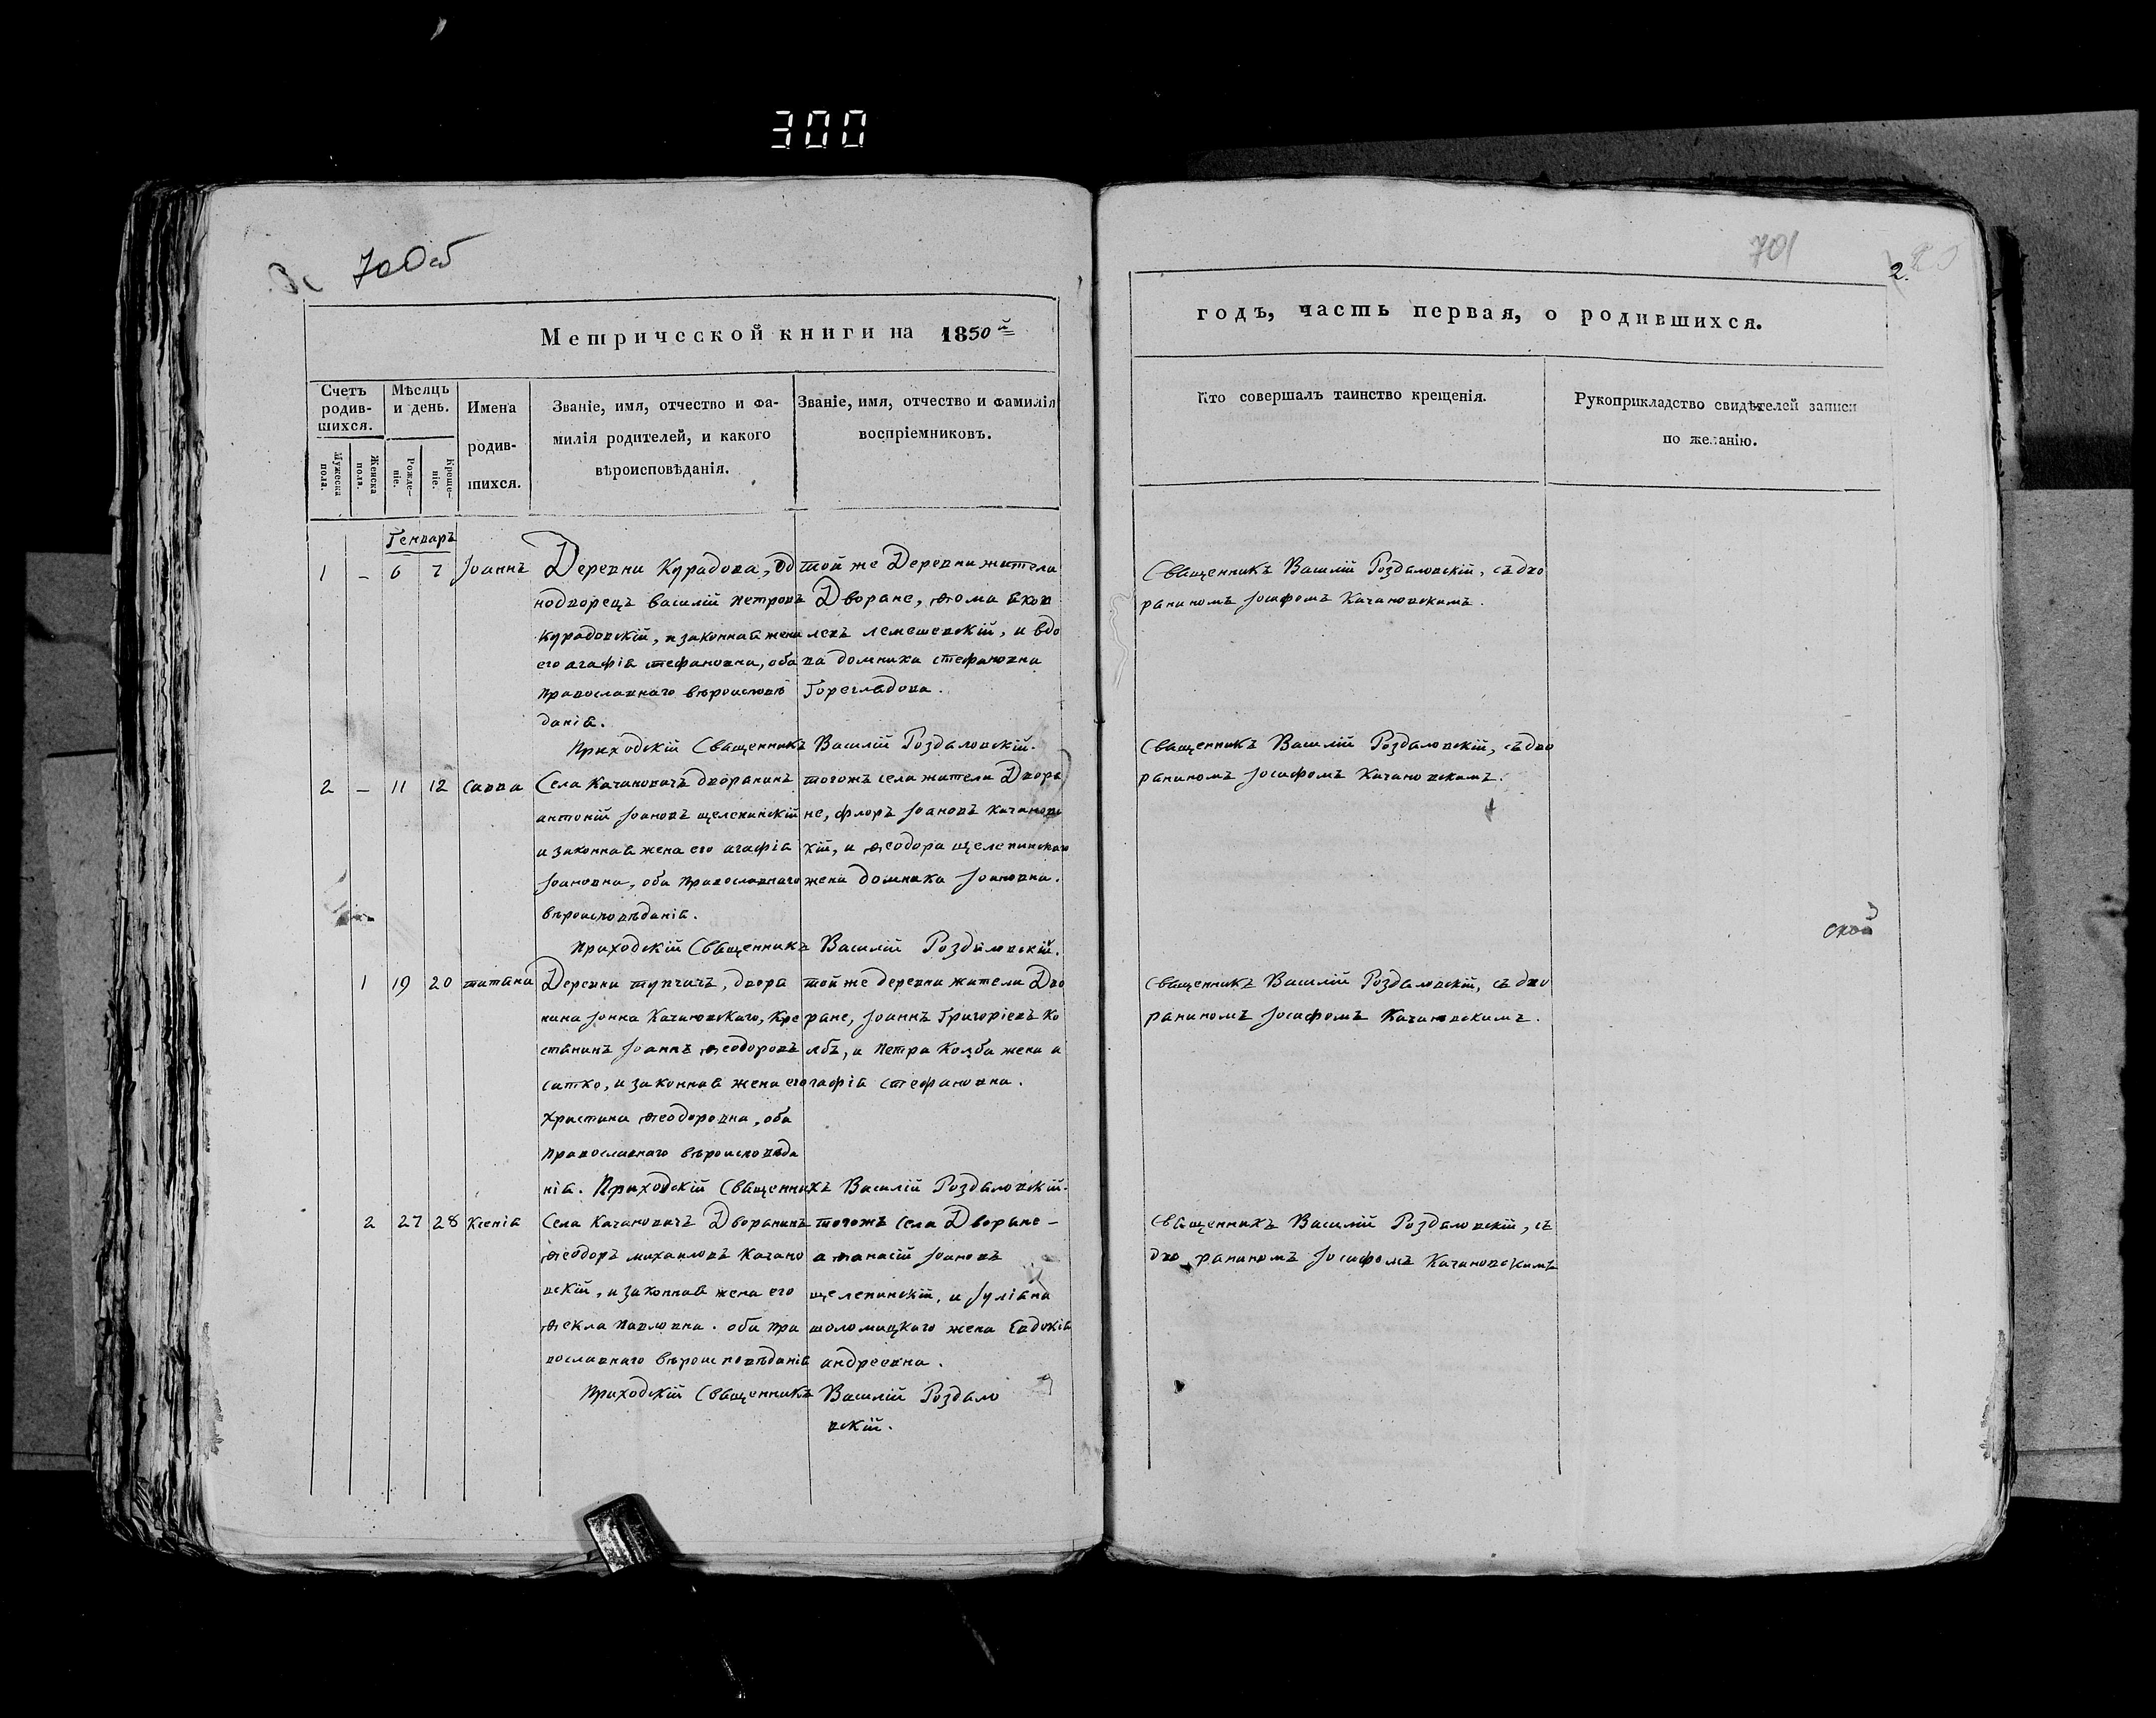 300
700об
701
2.
Метрической книги на 1850й
годъ, часть первая, о родившихся.
Счетъ родив-шихся.
Мужеска пола.
Женска пола.
Мѣсяцъ и день.
Рожде-ніе.
Креще-ніе.
Имена
родив-
шихся.
Званіе, имя, отчество и фа-
милія родителей, и какого
вѣроисповѣданія.
Званіе, имя, отчество и фамилія
воспріемниковъ.
Кто совершалъ таинство крещенія.
Рукоприкладство свидѣтелей записи
по желанію.
Генварь
1 – 6 7 Іоаннъ
Деревни Курадова, Од
нодворецъ василій петровъ
Курадовскій, и законная жена
его агафія стефановна, оба
православнаго вѣроисповѣ
данія.
той же Деревни жители
Дворане, ѳома яков
левъ лемешевскій, и вдо
ва домника стефановна
Гореглядова.
Приходскій Священникъ Василій Роздяловскій.
Священникъ Василій Роздяловскій, съ дво
раниномъ Іосифомъ Качановскимъ.
2 – 11 12 савва
Села Качановичъ дворанинъ
антоній Іоановъ щепепинскій
и законная жена его агафія
Іоановна, оба православнаго
вѣроисповѣданія.
тогожъ села жители Двора
не, флоръ Іоановъ Качановс
кій, и ѳеодора щелепинскаго
жена домника Іоановна.
Приходскій Священникъ Василій Роздяловскій.
Священникъ Василій Роздяловскій, съ дво
раниномъ Іосифомъ Качановскимъ.
1 19 20 татіана
Деревни тупчичъ, двора
нина Іоина Качановскаго, Кре
стянинъ Іоаннъ ѳеодоровъ
сатко, и законная жена его
христина ѳеодоровна, оба
православнаго вѣроисповѣда
нія. Приходскій Священникъ Василій Роздяловскій.
той же деревни жители Дво
ране, Іоаннъ Григоріевъ Ко
лбъ, и петра Колба жена а
гафія стефановна.
Священникъ Василій Роздяловскій, съ дво
раниномъ Іосифомъ Качановскимъ.
2 27 28 Ксенія
Села Качановичъ Дворанинъ
ѳеодоръ михаиловъ Качано
вскій, и законная жена его
ѳекла павловна. оба пра
вославнаго вѣроисповѣданія
тогожъ села Дворане –
аѳанасій Іоановъ
щелепинскій, и Іуліана
шоломицкаго жена Евдокія
андреевна.
Приходскій Священникъ Василій Роздяло
вскій.
Священникъ Василій Роздяловскій, съ
дво раниномъ Іосифомъ Качановскимъ
ской